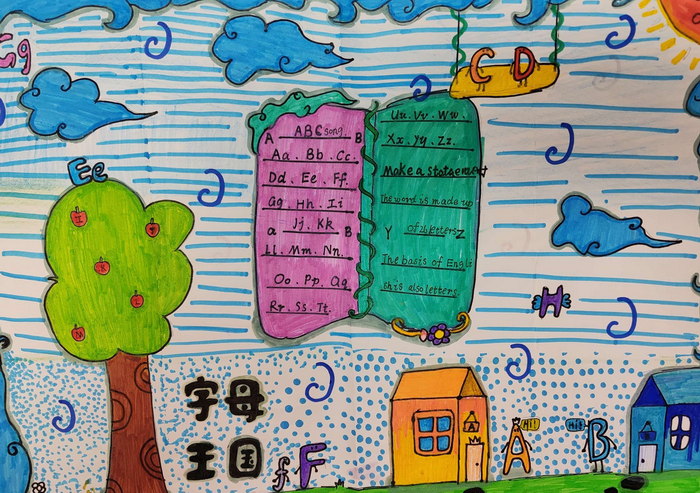 Gg
C D
Ee
A ABC song. B
Aa. Bb. Cc.
Dd. Ee. Ff.
Gg. Hh. Ii
a Jj. Kk B
Ll. Mm. Nn.
Oo. Pp. Qq.
Rr. Ss. Tt.
Uu. Vv. Ww.
Xx. Yy. Zz.
Make a statement
The word is made up
Y of 26 letters Z
The basis of Engli
sh is also letters
H
字母
王国
f F
A
A Hi!
Hi! B
B